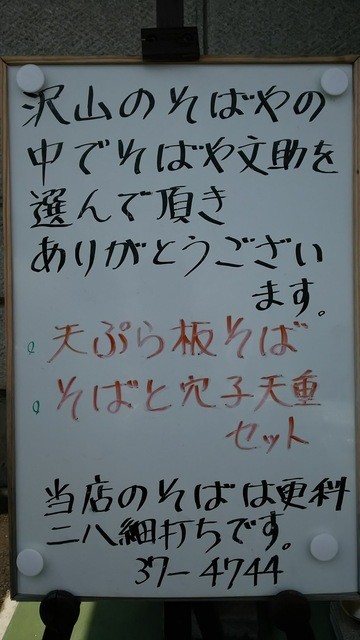 沢山のそばやの
中でそばや文助を
選んで頂き
ありがとうござい
ます。
天ぷら板そば
そばと穴子天重
セット
当店のそばは更科
二八細打ちです。
37-4744